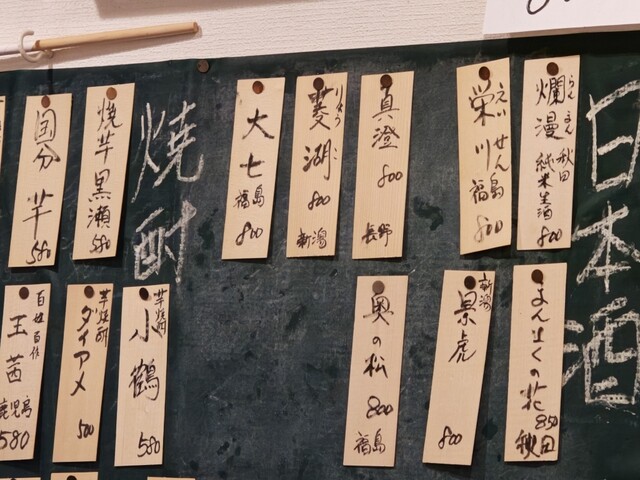 日本酒
爛漫
らん まん
秋田
純米生酒
800
栄川
えい せん
福島
800
真澄
800
長野
菱湖
りょう こ
800
新潟
大七
福島
800
まんさくの花
850
秋田
景虎
新潟
800
奥の松
800
福島
焼酎
焼芋黒瀬
580
国分 芋
580
芋焼酎
小鶴
580
芋焼酎
ダイアメ
500
百姓百作
玉茜
鹿児島
580